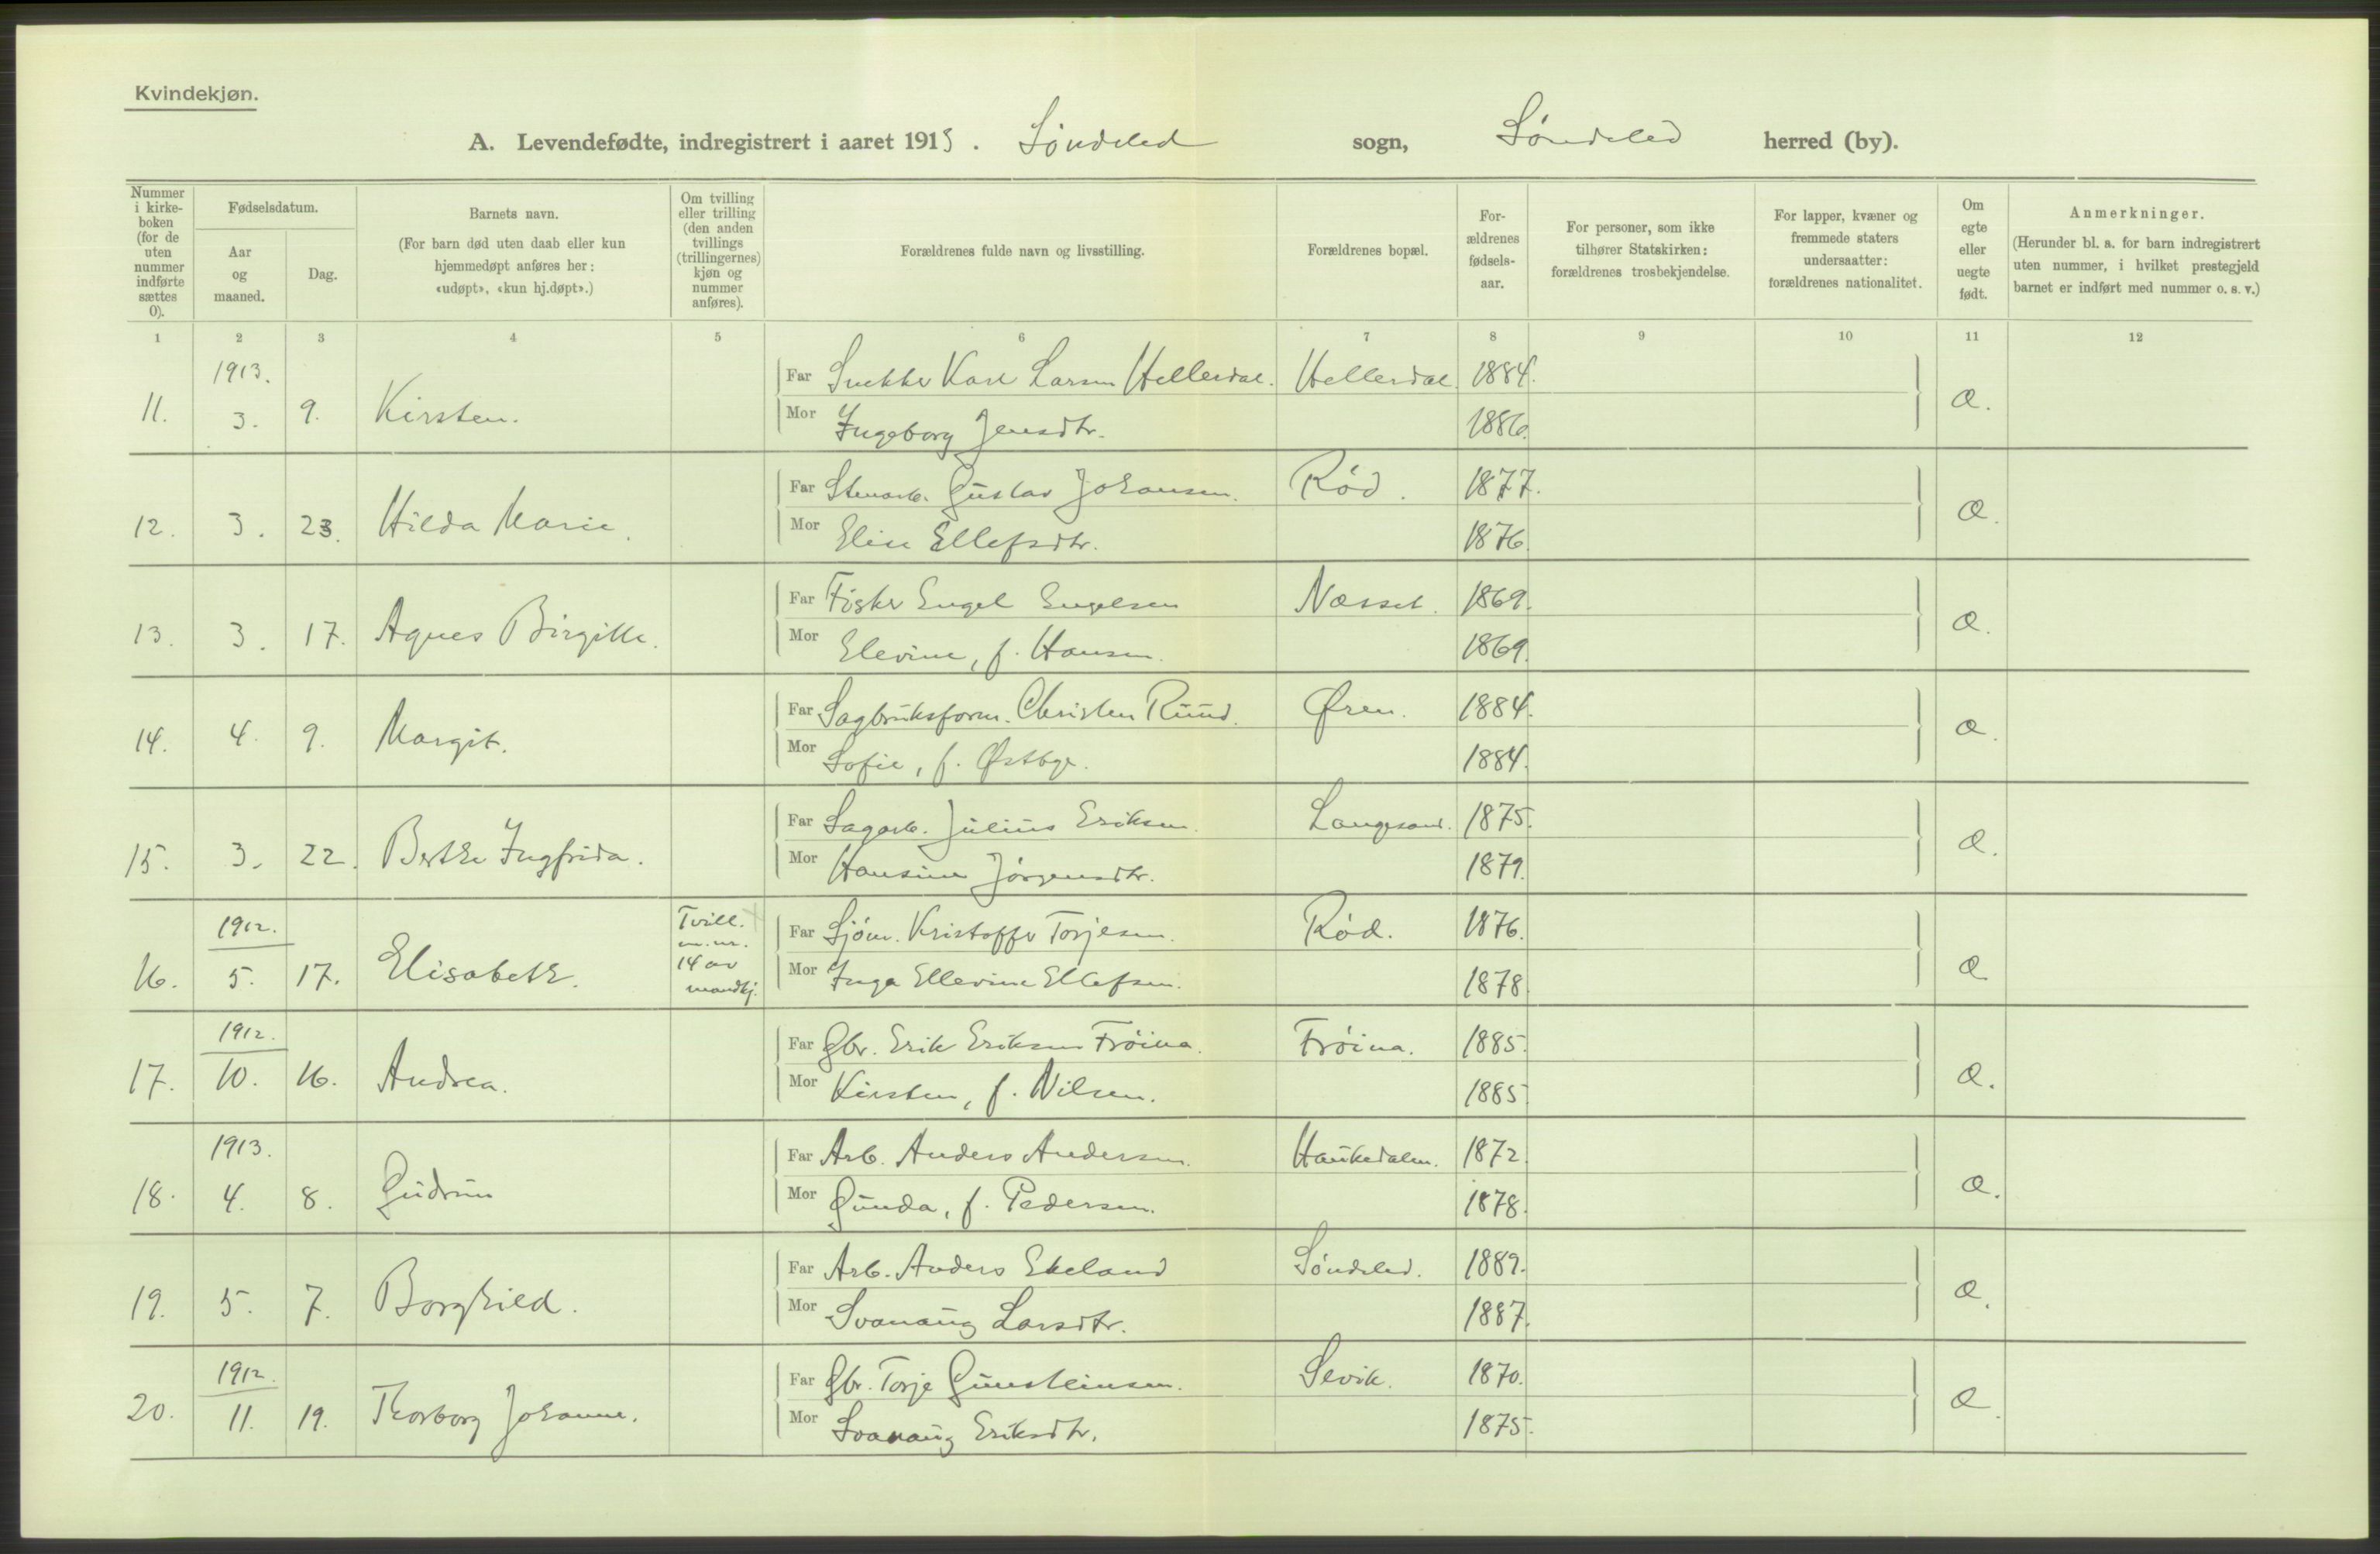 Kvindekjøn.
A. Levendefødte, indregistrert i aaret 1913. Søndeled sogn, Søndeled herred (by).
Nummer i kirke-boken (for de uten nummer indførte sættes 0).
Fødselsdatum.
Aar og maaned.
Dag.
Barnets navn.
(For barn død uten daab eller kun hjemmedøpt anføres her: «udøpt», «kun hj.døpt».)
Om tvilling eller trilling (den anden tvillings (trillingernes) kjøn og nummer anføres).
Forældrenes fulde navn og livsstilling.
Forældrenes bopæl.
For-ældrenes fødsels-aar.
For personer, som ikke tilhører Statskirken: forældrenes trosbekjendelse.
For lapper, kvæner og fremmede staters undersaatter: forældrenes nationalitet.
Om egte eller uegte født.
Anmerkninger.
(Herunder bl. a. for barn indregistrert uten nummer, i hvilket prestegjeld barnet er indført med nummer o. s. v.)
1 2 3 4 5 6 7 8 9 10 11 12
1913.
Far Snekker Karl Larsen Hellerdal. Hellerdal 1884.
11. 3. 9. Kirsten. Æ.
Mor Ingeborg Jensdtr. 1886.
Far Stenarb. Gustav Johansen. Rød. 1877.
12. 3. 23. Hilda Marie. Æ.
Mor Elise Ellefsdtr. 1876.
Far Fisker Engel Engelsen Næsset. 1869.
13. 3. 17. Agnes Birgitte. Æ.
Mor Elevine, f. Hansen. 1869.
Far Sagbruksform. Christen Ruud. Øren. 1884.
14. 4. 9. Margit. Æ.
Mor Sofie, f. Østbye. 1884.
Far Sagarb. Julius Eriksen. Langesand. 1875.
15. 3. 22. Berthe Ingfrida. Æ.
Mor Hansine Jørgensdtr. 1879.
1912. Tvill. m. nr. 14 av mandkj.
Far Sjøm. Kristoffer Torjesen. Rød. 1876.
16. 5. 17. Elisabeth. Æ
Mor Inga Ellevine Ellefsen. 1878
1912.
Far Gbr. Erik Eriksen Frøina. Frøina. 1885.
17. 10. 16. Andrea. Æ.
Mor Kirsten, f. Nilsen. 1885
1913.
Far Arb. Anders Andersen. Haukedalen. 1872.
18. 4. 8. Gudrun Æ.
Mor Gunda, f. Pedersen. 1878.
Far Arb. Anders Ekeland Søndeled. 1889.
19. 5. 7. Borghild. Æ.
Mor Svanaug Larsdtr. 1887.
1912.
Far Gbr. Torje Gunsteinsen. Sevik. 1870.
20. 11. 19. Thorborg Johanne. Æ.
Mor Svanaug Eriksdtr. 1875.